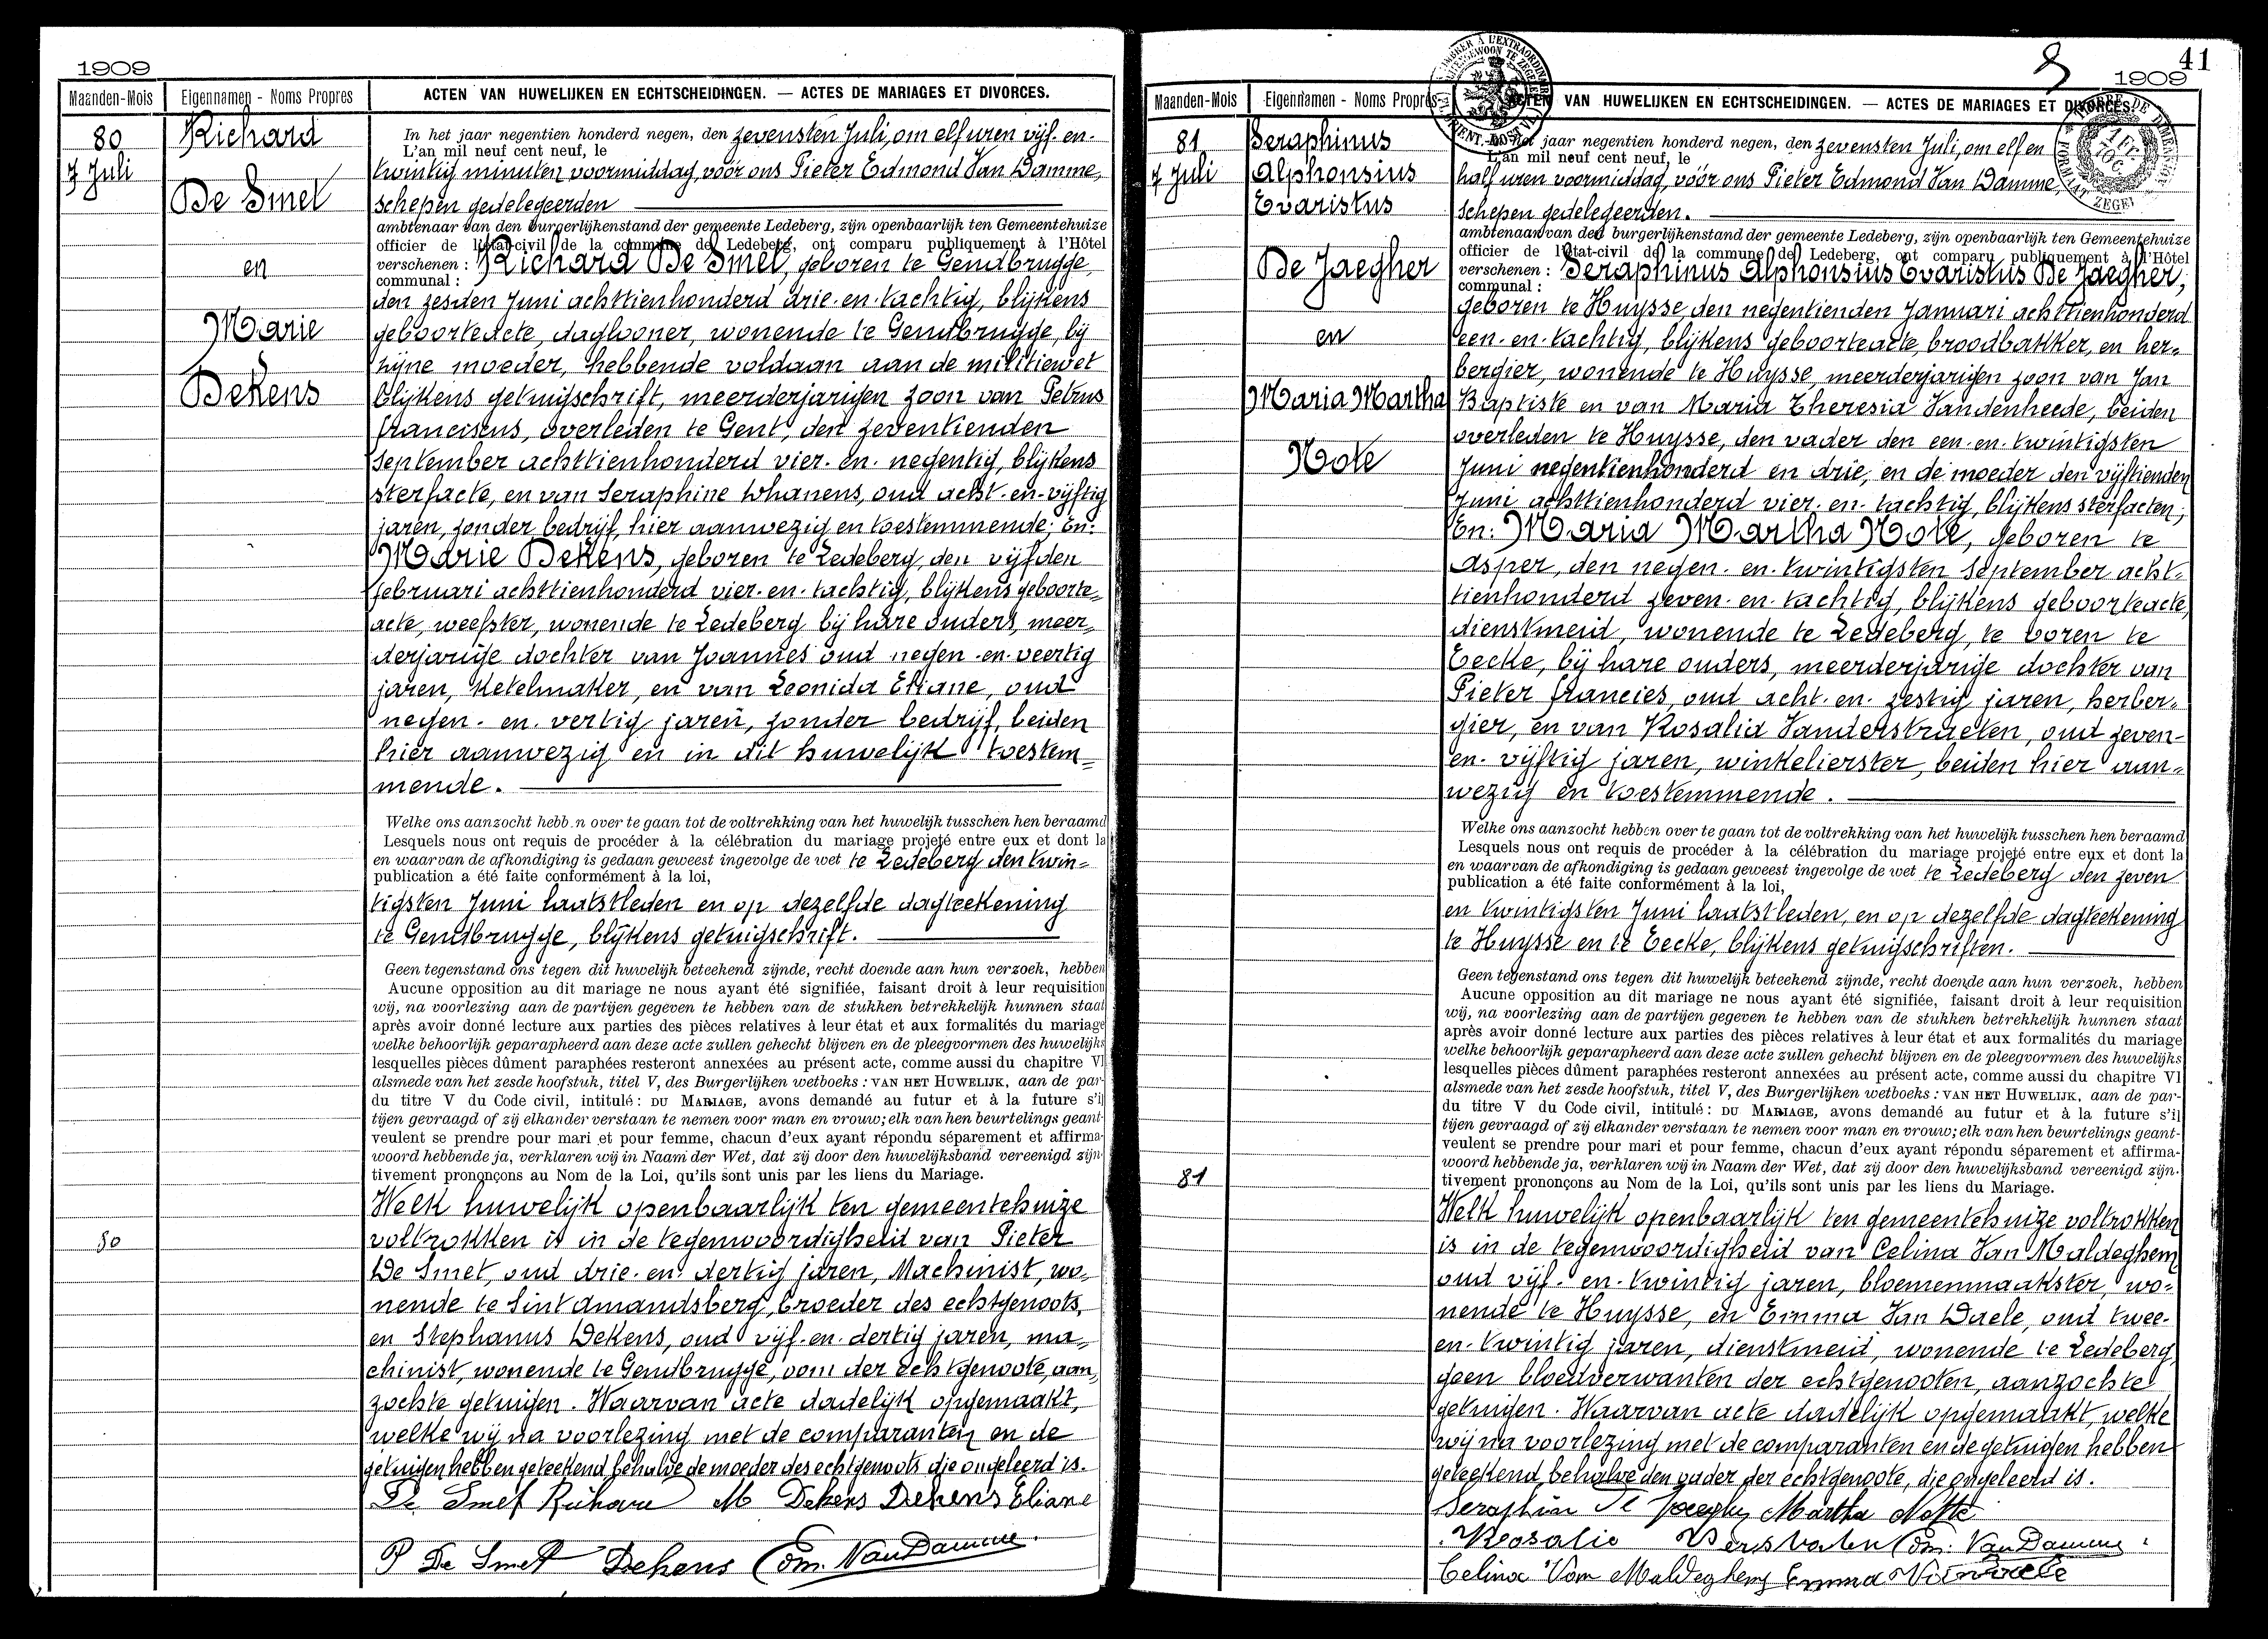 1909
Maanden-Mois Eigennamen - Noms Propres ACTEN VAN HUWELIJKEN EN ECHTSCHEIDINGEN. — ACTES DE MARIAGES ET DIVORCES.
80
7 Juli
Richard
De Smet
en
Marie
Dekens
In het jaar negentien honderd negen, den zevensten Juli, om elf uren vijf-en-
L'an mil neuf cent neuf, le
twintig minuten voormiddag, vóór ons Pieter Edmond Van Damme,
schepen gedelegeerden
ambtenaar van den burgerlijkenstand der gemeente Ledeberg, zijn openbaarlijk ten Gemeentehuize
officier de l'état-civil de la commune de Ledeberg, ont comparu publiquement à l'Hôtel
verschenen : Richard De Smet, geboren te Gendbrugge,
communal :
den zesden Juni achttienhonderd drie-en-tachtig, blijkens
geboorteacte, daglooner, wonende te Gendbrugge, bij
zijne moeder, hebbende voldaan aan de militiewet
blijkens getuigschrift, meerderjarigen zoon van Petrus
franciscus, overleden te Gent, den zeventienden
september achttienhonderd vier-en-negentig, blijkens
sterfacte, en van Seraphine Whanens, oud acht-en-vijftig
jaren, zonder bedrijf, hier aanwezig en toestemmende; En:
Marie Dekens, geboren te Ledeberg, den vijfden
februari achttienhonderd vier-en-tachtig, blijkens geboorte=
acte, weefster, wonende te Ledeberg bij hare ouders, meer=
derjarige dochter van Joannes oud negen-en-veertig
jaren, ketelmaker, en van Leonida Eliane, oud
negen-en-vertig jaren, zonder bedrijf, beiden
hier aanwezig en in dit huwelijk toestem=
mende.
Welke ons aanzocht hebben over te gaan tot de voltrekking van het huwelijk tusschen hen beraamd
Lesquels nous ont requis de procéder à la célébration du mariage projeté entre eux et dont la
en waarvan de afkondiging is gedaan geweest ingevolge de wet te Ledeberg den twin=
publication a été faite conformément à la loi,
tigsten Juni laatstleden en op dezelfde dagteekening
te Gendbrugge, blijkens getuigschrift.
Geen tegenstand ons tegen dit huwelijk beteekend zijnde, recht doende aan hun verzoek, hebben
Aucune opposition au dit mariage ne nous ayant été signifiée, faisant droit à leur requisition
wij, na voorlezing aan de partijen gegeven te hebben van de stukken betrekkelijk hunnen staat
après avoir donné lecture aux parties des pièces relatives à leur état et aux formalités du mariage
welke behoorlijk geparapheerd aan deze acte zullen gehecht blijven en de pleegvormen des huwelijks
lesquelles pièces dûment paraphées resteront annexées au présent acte, comme aussi du chapitre VI
alsmede van het zesde hoofstuk, titel V, des Burgerlijken wetboeks : VAN HET HUWELIJK, aan de par-
du titre V du Code civil, intitulé : DU MARIAGE, avons demandé au futur et à la future s'il
tijen gevraagd of zij elkander verstaan te nemen voor man en vrouw; elk van hen beurtelings geant-
veulent se prendre pour mari et pour femme, chacun d'eux ayant répondu séparement et affirma-
woord hebbende ja, verklaren wij in Naam der Wet, dat zij door den huwelijksband vereenigd zijn.
tivement prononçons au Nom de la Loi, qu'ils sont unis par les liens du Mariage.
Welk huwelijk openbaarlijk ten gemeentehuize
80
voltrokken is in de tegenwoordigheid van Pieter
De Smet, oud drie-en-dertig jaren, Machinist, wo=
nende te Sint Amandsberg, broeder des echtgenoots,
en Stephanus Dekens, oud vijf-en-dertig jaren, ma=
chinist, wonende te Gendbrugge, oom der echtgenoote, aan=
zochte getuigen. Waarvan acte dadelijk opgemaakt,
welke wij na voorlezing met de comparanten en de
getuigen hebben geteekend behalve de moeder des echtgenoots die ongeleerd is.
De Smet Richard M Dekens Dekens Eliane
P De Smet Dekens Edm. Van Damme
41
1909
Maanden-Mois Eigennamen - Noms Propres ACTEN VAN HUWELIJKEN EN ECHTSCHEIDINGEN. — ACTES DE MARIAGES ET DIVORCES.
81
7 Juli
Seraphinus
Alphonsius
Evaristus
De Jaegher
en
Maria Martha
Note
In het jaar negentien honderd negen, den zevensten Juli, om elf en
L'an mil neuf cent neuf, le
half uren voormiddag, vóór ons Pieter Edmond Van Damme,
schepen gedelegeerden.
ambtenaar van den burgerlijkenstand der gemeente Ledeberg, zijn openbaarlijk ten Gemeentehuize
officier de l'état-civil de la commune de Ledeberg, ont comparu publiquement à l'Hôtel
verschenen : Seraphinus Alphonsius Evaristus De Jaegher,
communal :
geboren te Huysse, den negentienden Januari achttienhonderd
een-en-tachtig, blijkens geboorteacte, broodbakker, en her=
bergier, wonende te Huysse, meerderjarigen zoon van Jan
Baptiste en van Maria Theresia Vandenheede, beiden
overleden te Huysse, den vader den een-en-twintigsten
Juni negentienhonderd en drie, en de moeder den vijftienden
Juni achttienhonderd vier-en-tachtig, blijkens sterfacten;
En: Maria Martha Note, geboren te
Asper, den negen-en-twintigsten September acht=
tienhonderd zeven-en-tachtig, blijkens geboorteacte,
dienstmeid, wonende te Ledeberg, te voren te
Eecke, bij hare ouders, meerderjarige dochter van
Pieter francies, oud acht-en-zestig jaren, herber=
gier, en van Rosalia Vanderstraeten, oud zeven-
en-vijftig jaren, winkelierster, beiden hier aan=
wezig en toestemmende.
Welke ons aanzocht hebben over te gaan tot de voltrekking van het huwelijk tusschen hen beraamd
Lesquels nous ont requis de procéder à la célébration du mariage projeté entre eux et dont la
en waarvan de afkondiging is gedaan geweest ingevolge de wet te Ledeberg den zeven
publication a été faite conformément à la loi,
en twintigsten Juni laatstleden, en op dezelfde dagteekening
te Huysse en te Eecke, blijkens getuigschriften.
Geen tegenstand ons tegen dit huwelijk beteekend zijnde, recht doende aan hun verzoek, hebben
Aucune opposition au dit mariage ne nous ayant été signifiée, faisant droit à leur requisition
wij, na voorlezing aan de partijen gegeven te hebben van de stukken betrekkelijk hunnen staat
après avoir donné lecture aux parties des pièces relatives à leur état et aux formalités du mariage
welke behoorlijk geparapheerd aan deze acte zullen gehecht blijven en de pleegvormen des huwelijks
lesquelles pièces dûment paraphées resteront annexées au présent acte, comme aussi du chapitre VI
alsmede van het zesde hoofstuk, titel V, des Burgerlijken wetboeks : VAN HET HUWELIJK, aan de par-
du titre V du Code civil, intitulé : DU MARIAGE, avons demandé au futur et à la future s'il
tijen gevraagd of zij elkander verstaan te nemen voor man en vrouw; elk van hen beurtelings geant-
veulent se prendre pour mari et pour femme, chacun d'eux ayant répondu séparement et affirma-
woord hebbende ja, verklaren wij in Naam der Wet, dat zij door den huwelijksband vereenigd zijn.
81
tivement prononçons au Nom de la Loi, qu'ils sont unis par les liens du Mariage.
Welk huwelijk openbaarlijk ten gemeentehuize voltrokken
is in de tegenwoordigheid van Celina Van Maldeghem,
oud vijf-en-twintig jaren, bloemenmaakster, wo=
nende te Huysse, en Emma Van Daele, oud twee-
en-twintig jaren, dienstmeid, wonende te Ledeberg,
geen bloedverwanten der echtgenooten, aanzochte
getuigen. Waarvan acte dadelijk opgemaakt, welke
wij na voorlezing met de comparanten en de getuigen hebben
geteekend, behalve den vader der echtgenoote, die ongeleerd is.
Seraphin De Jaegher Martha Notte
Rosalie Edm. Van Damme
Celina Van Maldeghem Emma